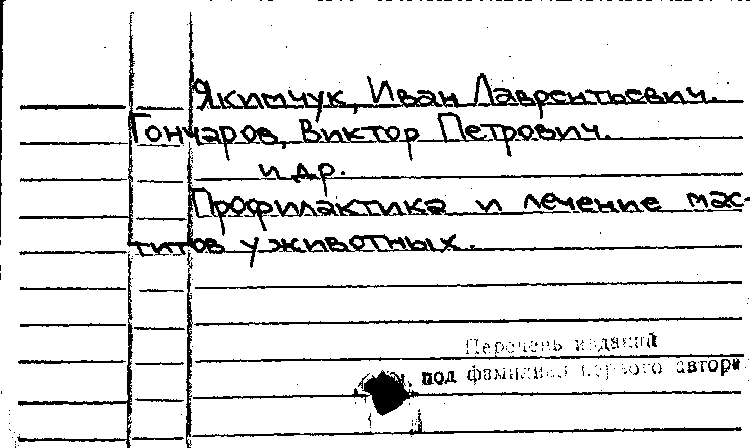 Якимчук, Иван Лаврентьевич.
Гончаров, Виктор Петрович.
и др.
Профилактика и лечение мас-
титов у животных.
Перечень изданий
под фамилией первого автора